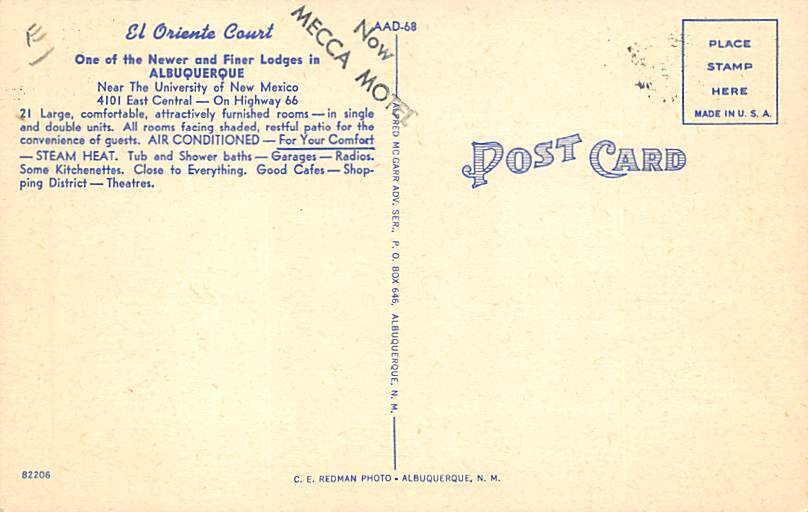 El Oriente Court
One of the Newer and Finer Lodges in
ALBUQUERQUE
Near The University of New Mexico
4101 East Central — On Highway 66
21 Large, comfortable, attractively furnished rooms — in single
and double units. All rooms facing shaded, restful patio for the
convenience of guests. AIR CONDITIONED — For Your Comfort
— STEAM HEAT. Tub and Shower baths — Garages — Radios.
Some Kitchenettes. Close to Everything. Good Cafes — Shop-
ping District — Theatres.
Now
MECCA MOTEL
AAD-68
ALFRED MC GARR ADV. SER., P. O. BOX 646, ALBUQUERQUE, N. M.
POST CARD
PLACE
STAMP
HERE
MADE IN U. S. A.
82206
C. E. REDMAN PHOTO • ALBUQUERQUE, N. M.